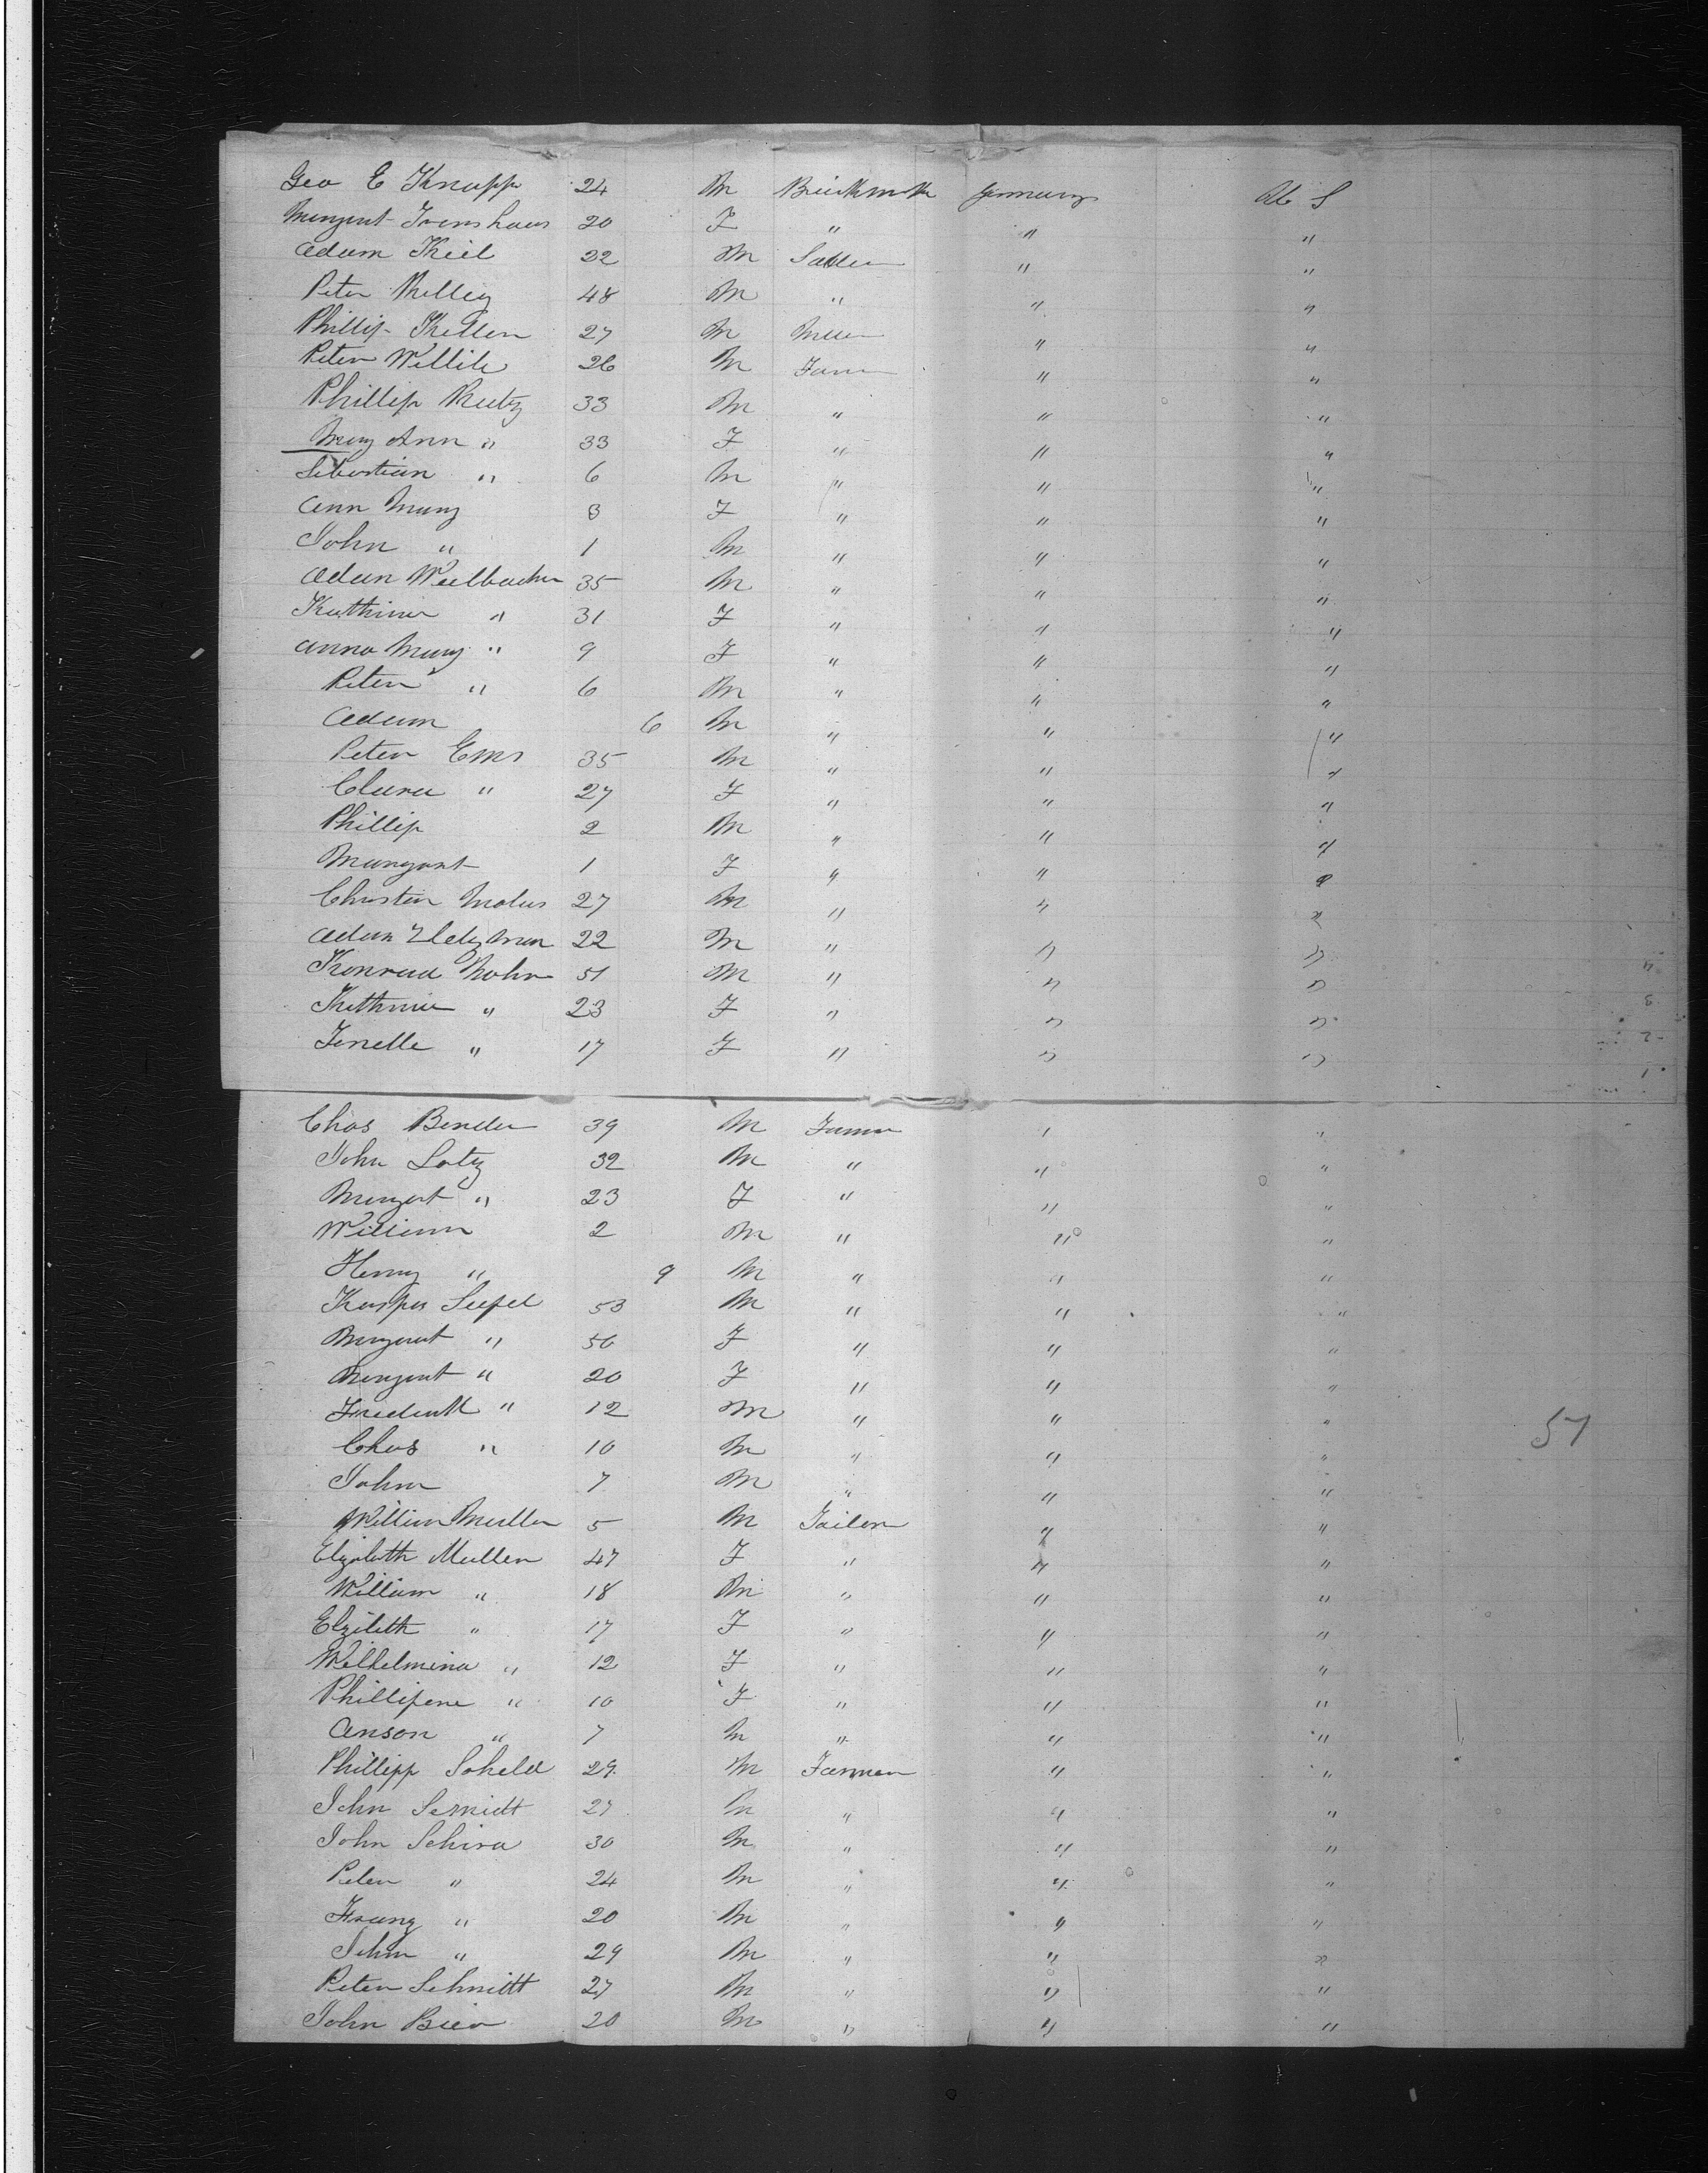 Geo E Knapp 24 M Brickmak Germany U S
Margart 20 F " " "
Adam Keil 22 M " "
Peter Kelley 48 M " " "
Phillip Keller 27 M Miller " "
Peter 26 M Farm " "
Phillip 33 M " " "
Mary Ann " 33 F " " "
Sebastian " 6 M " " "
Ann Mary 3 F " " "
John " 1 M " " "
Adam Weelbacher 35 M " " "
Kathiner " 31 F " " "
Anna Mary " 9 F " " "
Peter " 6 M " " "
Adam 6 M " " "
Peter Ems 35 M " " "
Clara " 27 F " " "
Phillip 2 M " " "
Margart 1 F " " "
Christin 27 M " " "
Adam 22 M " " "
Konrad 51 M " " "
Kethrine " 23 F " " "
" 17 F " " "
4
3
2
1
Chas Bender 39 M Farmer " "
John Lotz 32 M " " "
Margart " 23 F " " "
William 2 M " " "
Henry " 9 M " " "
Kasper Seipel 53 M " " "
Margart " 50 F " " "
Margart " 20 F " " "
Frederick " 12 M " " "
57
Chas " 10 M " " "
John 7 M " " "
William Muller 5 M Tailor " "
Elizabeth Muller 47 F " " "
William " 18 M " " "
Elzibeth " 17 F " " "
Wilhelmina " 12 F " " "
Phillipene " 10 F " " "
Anson " 7 M " " "
Phillipp Scheld 29 M Farmer " "
John Scmidt 27 M " " "
John Schira 30 M " " "
Peter " 24 M " " "
Franz " 20 M " " "
John " 29 M " " "
Peter Schmitt 27 M " " "
John Bier 20 M " " "